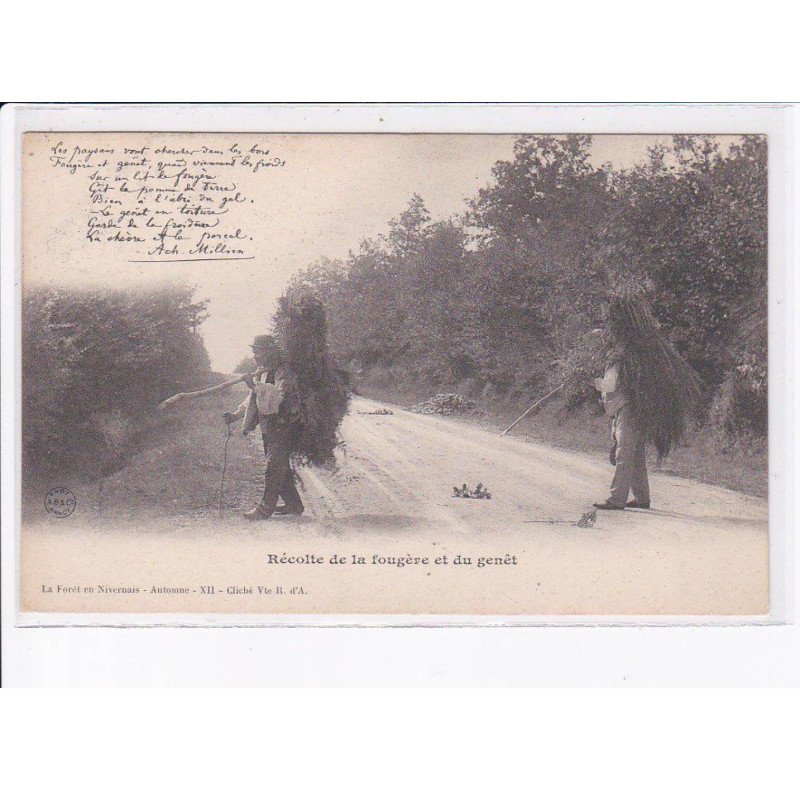 Les paysans vont chercher dans les bois
Fougère et genêt, quand viennent les froids
Sur un lit de fougère
Gît la pomme de terre
Bien à l'abri du gel.
Le genêt en toiture
Garde de la froidure
La chèvre et le porcel.
Ach. Millien
Récolte de la fougère et du genêt
La Forêt en Nivernais - Automne - XII - Cliché Vte R. d'A.